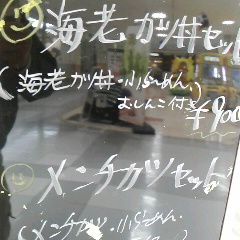 海老カツ丼セット
(海老カツ丼・小らーめん、
おしんこ付き)
¥900
メンチカツセット
(メンチカツ・小らーめん.